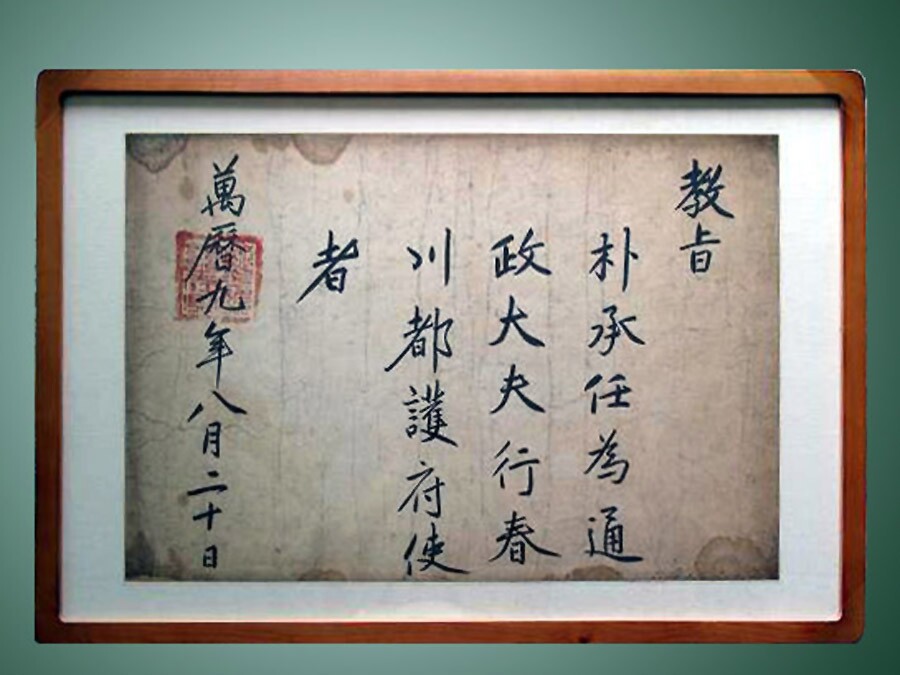 教旨
朴承任為通
政大夫行春
川都護府使
者
萬曆九年八月二十日